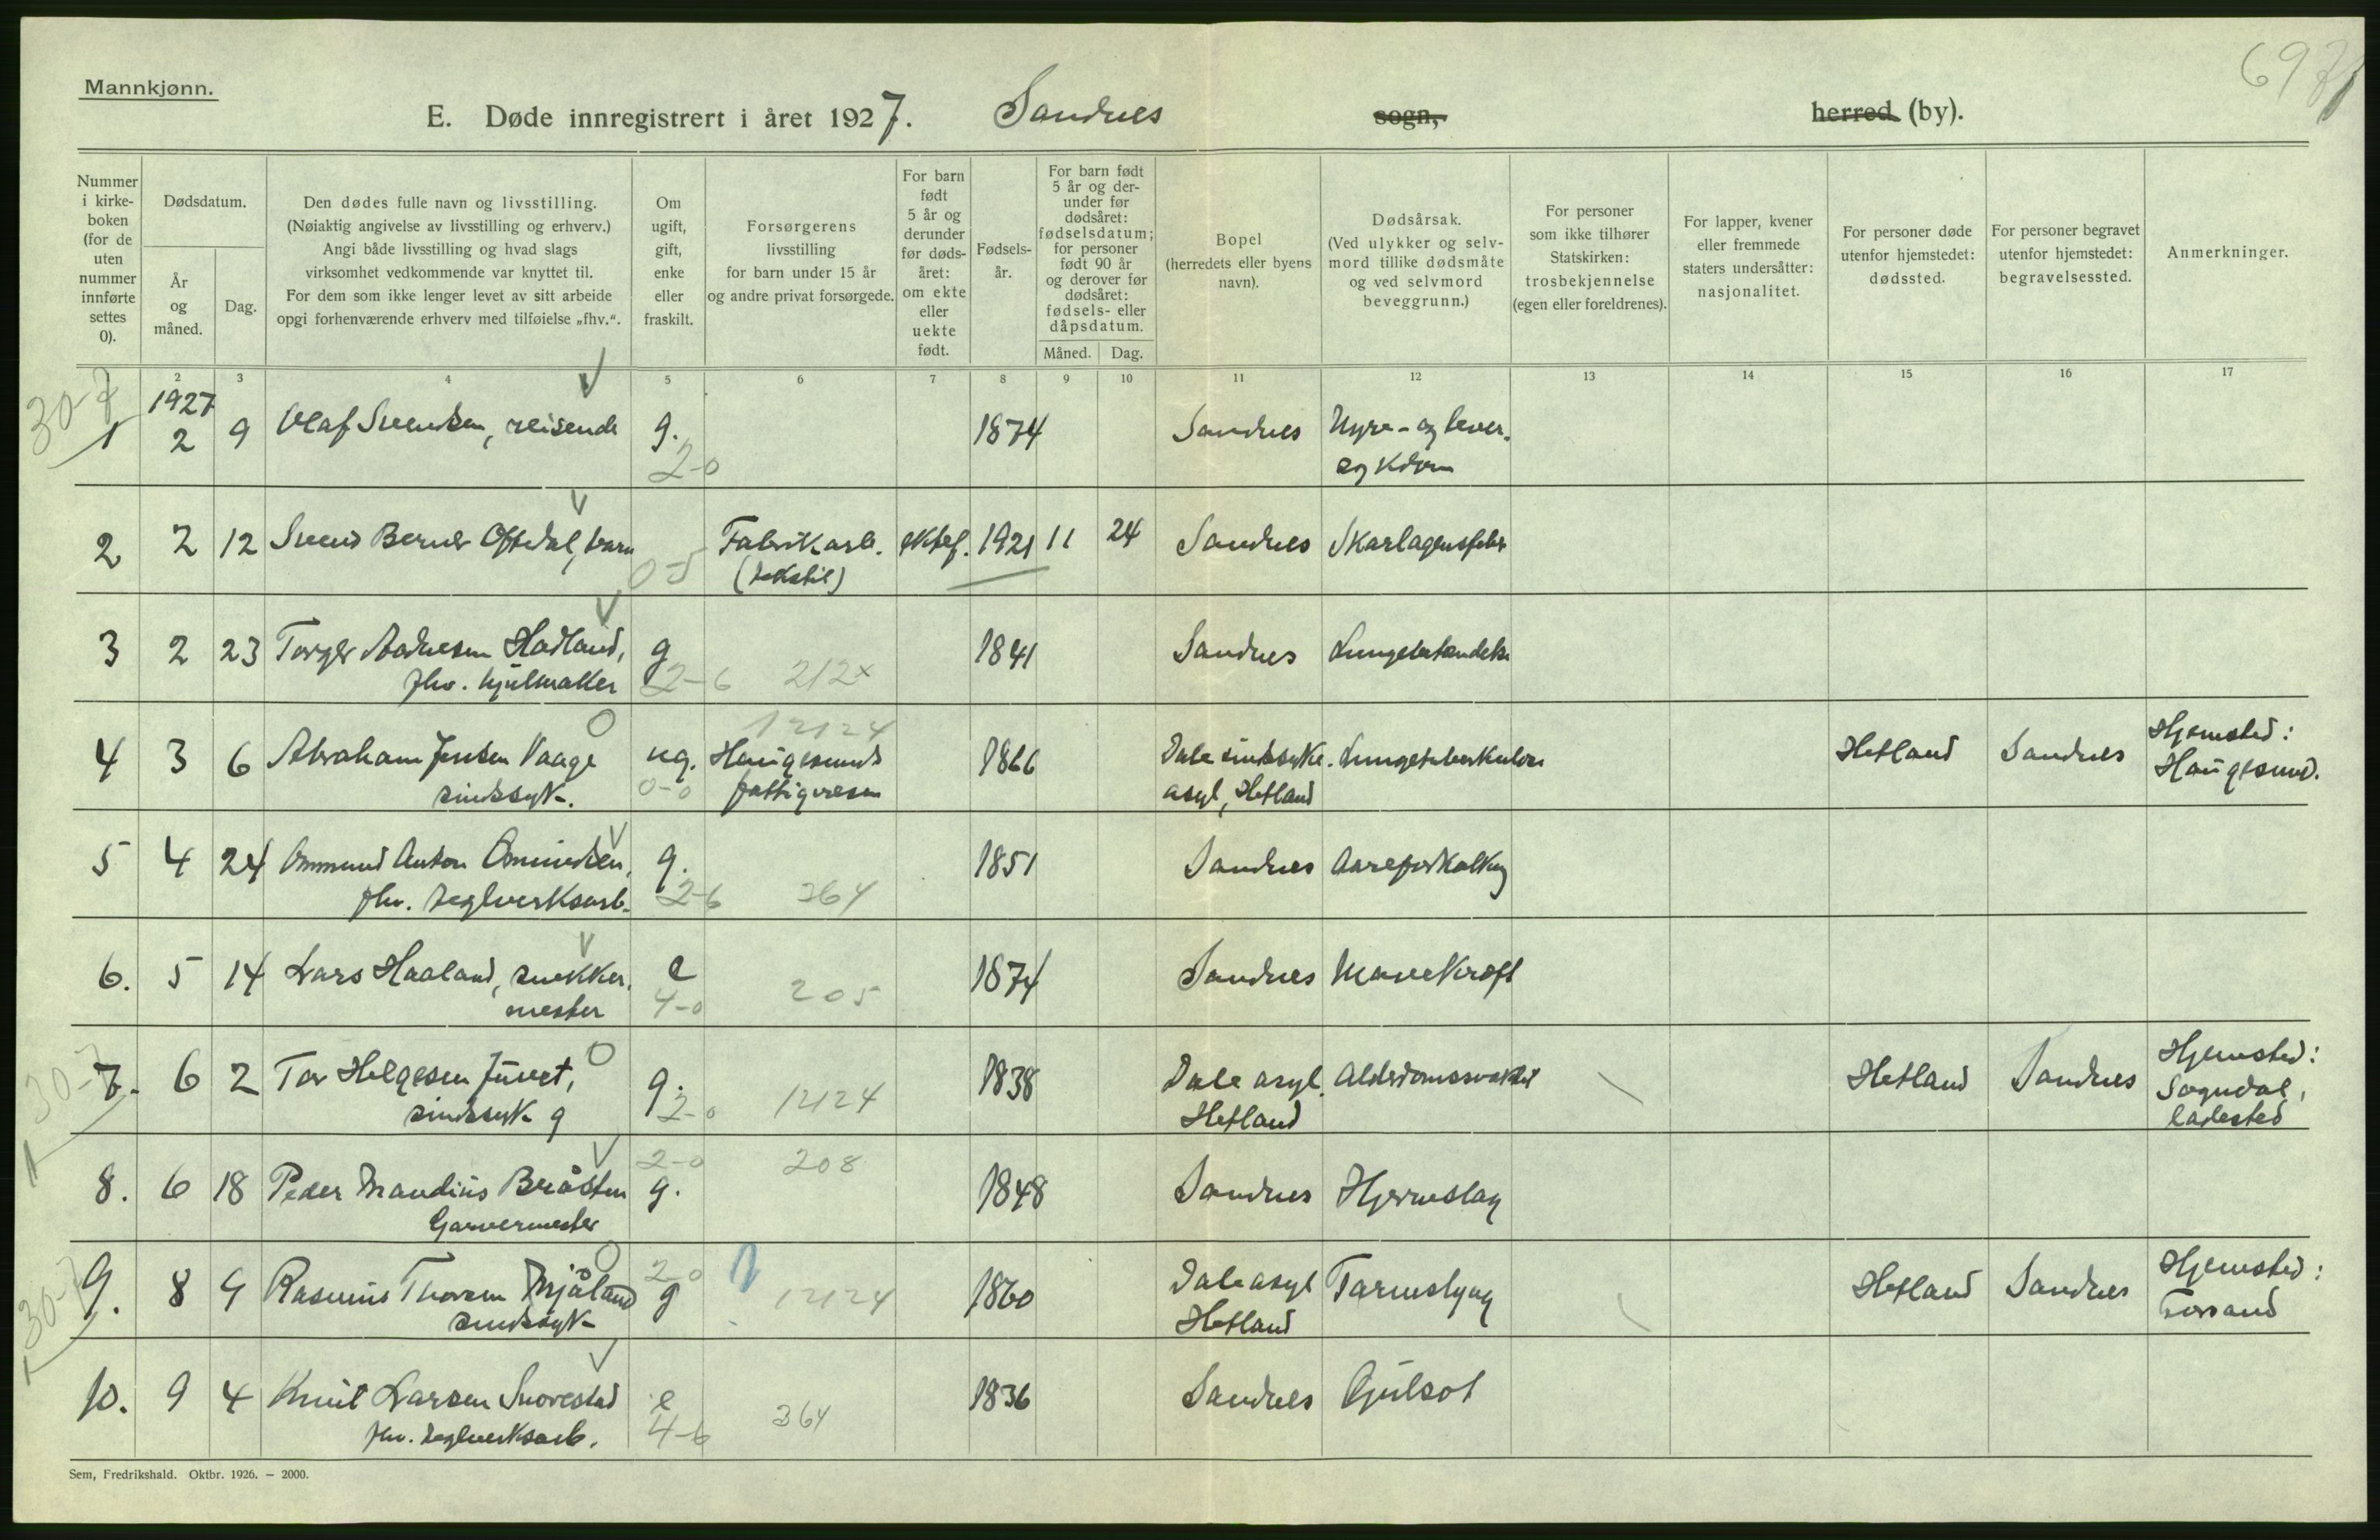 Mannkjønn.
697
E. Døde innregistrert i året 1927. Sandnes sogn, herred (by).
Nummer i kirke- boken (for de uten nummer innførte settes 0).
Dødsdatum.
År og måned.
Dag.
Den dødes fulle navn og livsstilling.
(Nøiaktig angivelse av livsstilling og erhverv.)
Angi både livsstilling og hvad slags
virksomhet vedkommende var knyttet til.
For dem som ikke lenger levet av sitt arbeide
opgi forhenværende erhverv med tilføielse „fhv.“.
Om ugift, gift, enke eller fraskilt.
Forsørgerens livsstilling
for barn under 15 år
og andre privat forsørgede.
For barn født 5 år og derunder før døds- året: om ekte eller uekte født.
Fødsels- år.
For barn født 5 år og der- under før dødsåret: fødselsdatum; for personer født 90 år og derover før dødsåret: fødsels- eller dåpsdatum.
Måned. Dag.
Bopel
(herredets eller byens navn).
Dødsårsak.
(Ved ulykker og selv- mord tillike dødsmåte og ved selvmord beveggrunn.)
For personer som ikke tilhører Statskirken: trosbekjennelse (egen eller foreldrenes).
For lapper, kvener eller fremmede staters undersåtter: nasjonalitet.
For personer døde utenfor hjemstedet: dødssted.
For personer begravet utenfor hjemstedet: begravelsessted.
Anmerkninger.
2 3 4 5 6 7 8 9 10 11 12 13 14 15 16 17
30-7
1927
1 2 9 Olaf Svendsen, reisende g. 1874 Sandnes Nyre- og lever-
2-0 sygdom
2 2 12 Svend Berner Oftedal, barn Fabrikarb. ektef. 1921 11 24 Sandnes Skarlagensfeber
0-5 (tekstil)
3 2 23 Torger Aadnesen Hadland, g 1841 Sandnes Lungebetændelse
fhv. hjulmaker 2-6 212x
12124
4 3 6 Abraham Jensen Vaage ug. Haugesunds 1866 Dale sindssyke- Lungetuberkulose Hetland Sandnes Hjemsted:
sindssyk. 0-0 fattigvesen asyl, Hetland Haugesund.
5 4 24 Ommund Anton Omundsen, g. 1851 Sandnes Aareforkalkng
fhv. teglverksarb. 2-6 364
6. 5 14 Lars Haaland, snekker- e 1874 Sandnes Mavekræft
mester 4-0 205
30-7
7. 6 2 Tor Helgesen Juvet, g. 1838 Dale asyl. Alderdomssvakhet Hetland Sandnes Hjemsted:
sindssyk g 2-0 12124 Hetland Sogndal,
ladested
2-0 208
8. 6 18 Peder Mandius Bråsten g. 1848 Sandnes Hjerneslag
Garvermester
30-7
2-0
9. 8 9 Rasmus Thorsen Mjåland g 12124 1860 Dale asyl Tarmslyng Hetland Sandnes Hjemsted:
sindssyk Hetland Forsand
10. 9 4 Knut Larsen Snorestad e 1836 Sandnes Gulsot
fhv. teglverksarb. 4-6 364
Sem, Fredrikshald. Oktbr. 1926. – 2000.